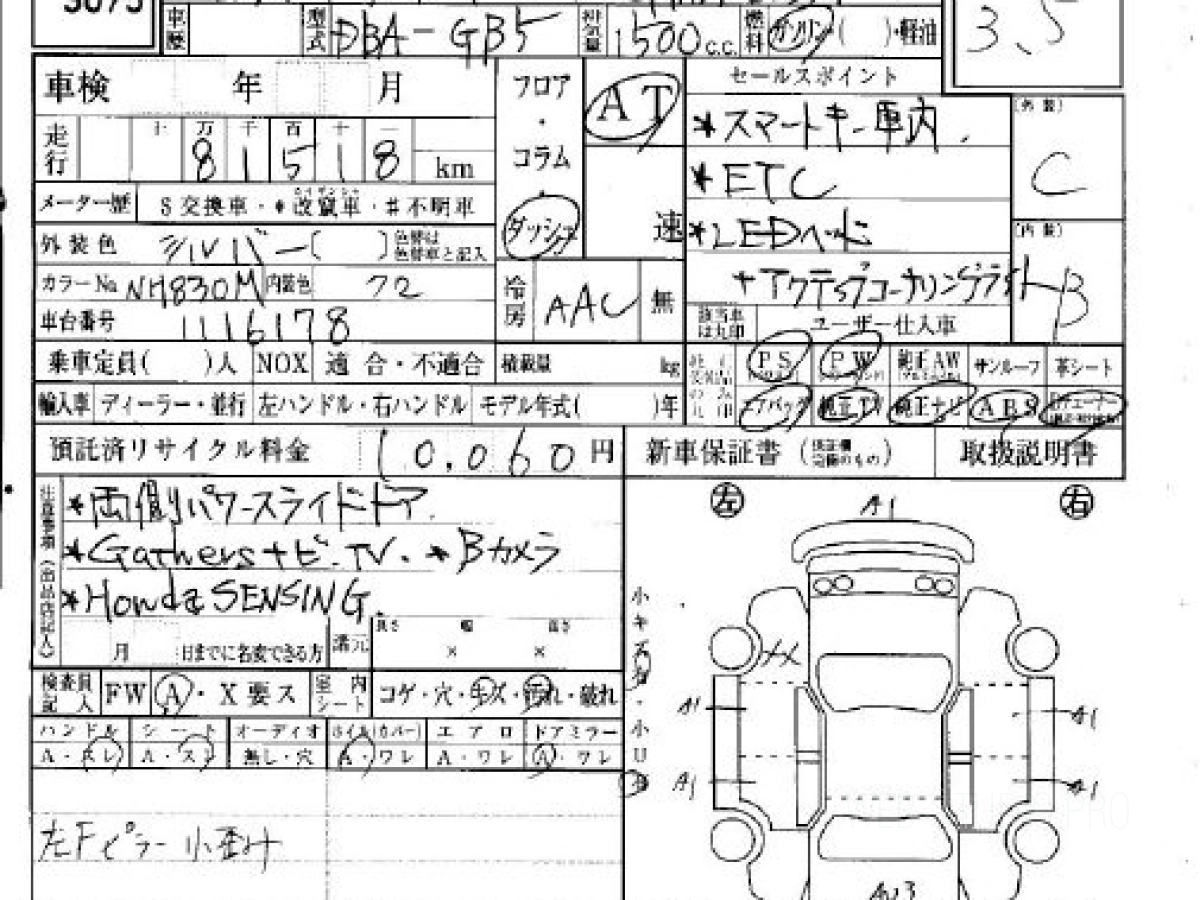 車歴 型式 DBA-GB5 排気量 1500c.c. 燃料 ガソリン( )・軽油
3.5
車検 年 月 フロア・コラム・ダッシュ AT 速
セールスポイント
*スマートキー車内.
*ETC
*LEDヘッド
+アクティブコーナリングライト
走行 十 万 千 百 十 一
8 1 5 1 8 km
メーター歴 S交換車・*改竄車・#不明車
外装色 シルバー( ) 色替は色替車と記入
カラーNo NH830M 内装色 72
冷房 AAC 無
(外装) C
(内装) B
車台番号 1116178
該当車は丸印 ユーザー仕入車
乗車定員( )人 NOX 適合・不適合 積載量 kg
PS PW 純正AW サンルーフ 革シート
輸入車 ディーラー・並行 左ハンドル・右ハンドル モデル年式( )年
エアバッグ 純正TV 純正ナビ ABS
預託済リサイクル料金 10,060円
新車保証書 取扱説明書
注意事項(出品店記入)
*両側パワースライドドア.
*Gathersナビ.TV. *Bカメラ
*Honda SENSING.
月 日までに名変できる方 長さ 幅 高さ
× ×
検査員記入 FW A・X要ス 室内シート コゲ・穴・キズ・汚れ・破れ
ハンドル シート オーディオ ホイル(カバー) エアロ ドアミラー
A・スレ A・スレ 無し・穴 A・ワレ A・ワレ A・ワレ
左Fピラー小歪み
左 A1 右
XX
A1 A1
A1 A1